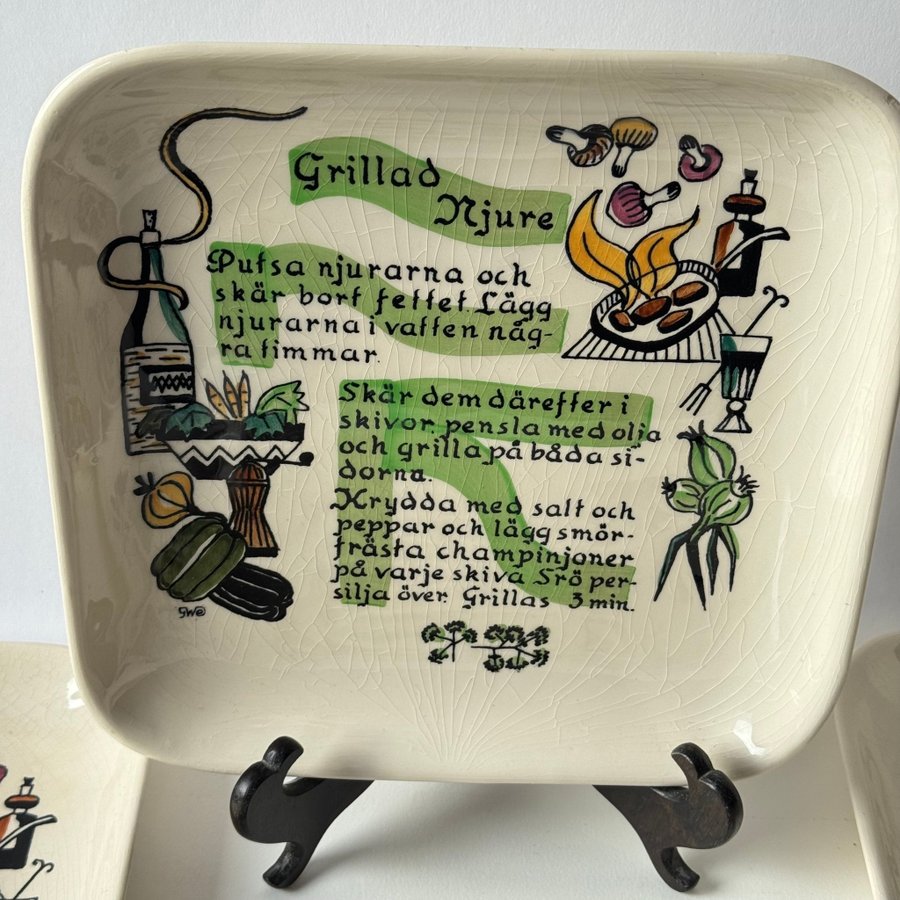 Grillad
Njure
Putsa njurarna och
skär bort fettet. Lägg
njurarna i vatten någ-
ra timmar.
Skär dem därefter i
skivor, pensla med olja
och grilla på båda si-
dorna.
Krydda med salt och
peppar och lägg smör-
frästa champinjoner
på varje skiva. Srö per-
silja över. Grillas 3 min.